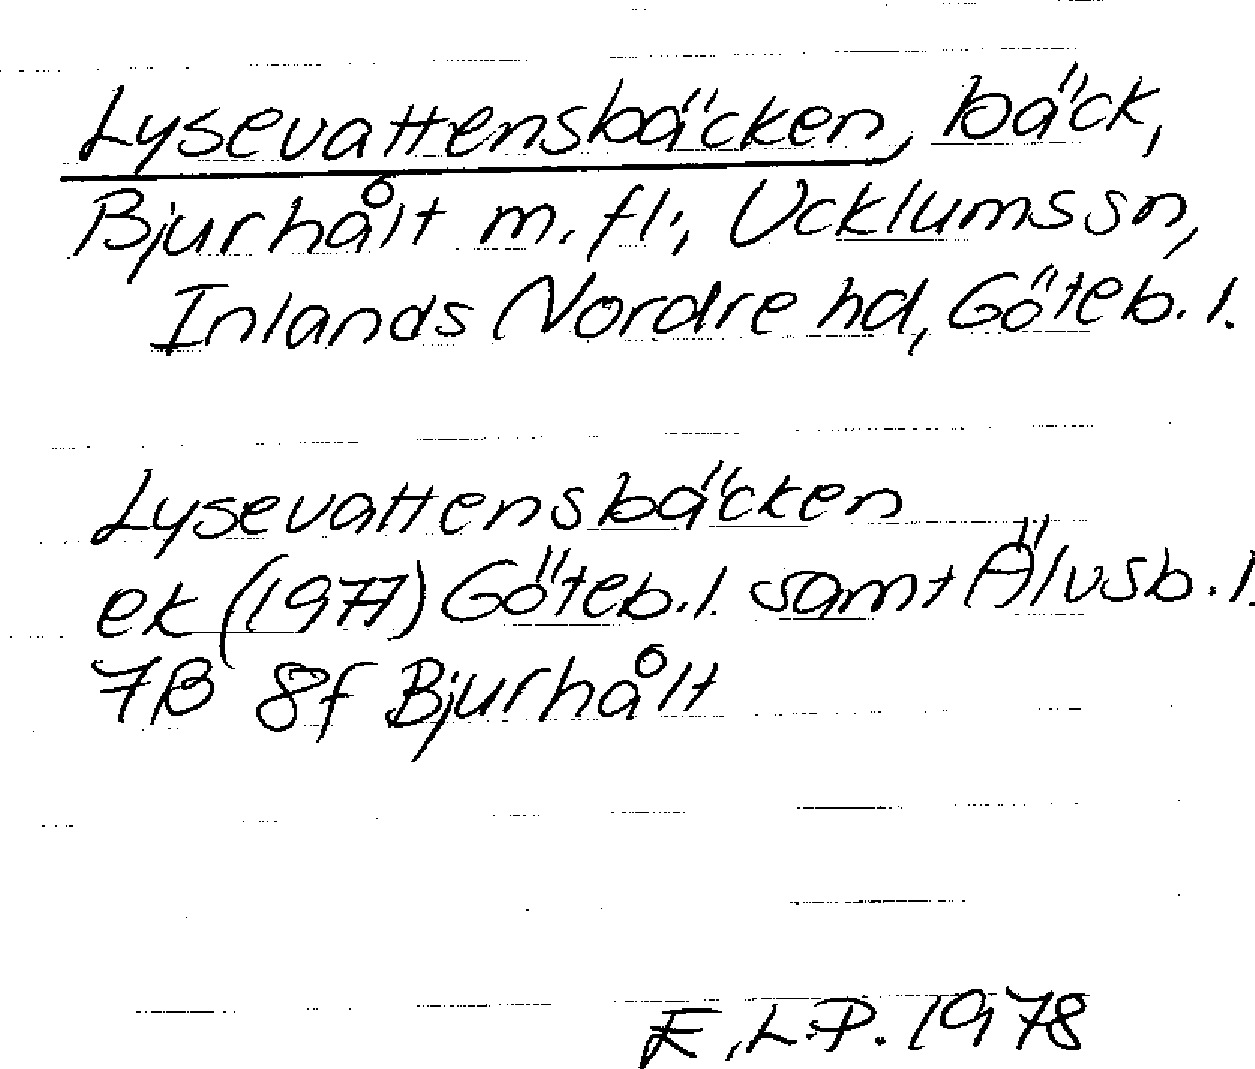 Lysevattensbäcken, bäck,
Bjurhålt m. fl., Ucklums sn,
Inlands Nordre hd, Göteb. l.
Lysevattensbäcken
ek (1977) Göteb. l. samt Älvsb. l.
7B 8f Bjurhålt
E.L.P. 1978